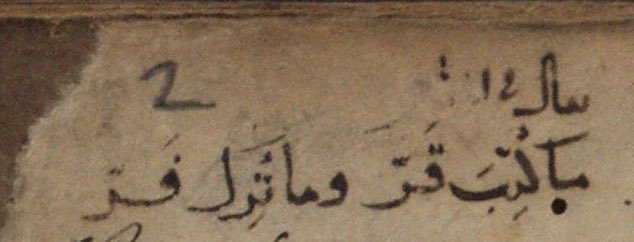 سال ١٤ 2
مَا كُتِبَ قَرّ وما فَرّ